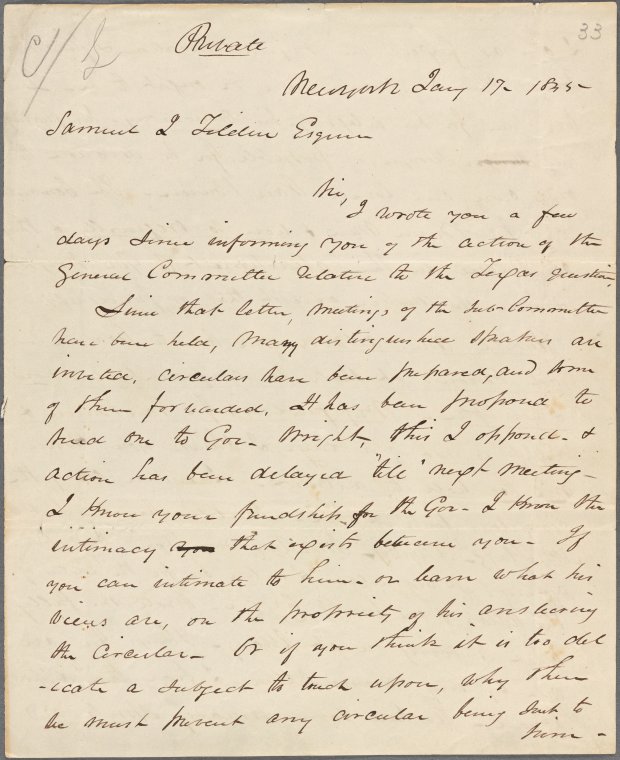 Private
33
Newyork Jany 17- 1845-
Samuel J Tilden Esquire
Sir,
I wrote you a few
days since informing you of the action of the
General Committee relative to the Texas question,
Since that letter, meetings of the Sub-Committee
have been held, many distinguished speakers are
invited, circulars have been prepared, and some
of them forwarded, It has been proposed to
send one to Gov- Wright, this I opposed- &
action has been delayed "till" next meeting-
I know your friendship for the Gov- I know the
intimacy you that exists between you- If
you can intimate to him- or learn what his
views are, on the propriety of his answering
the circular- Or if you think it is too del
-icate a subject to touch upon, why then
we must prevent any circular being sent to
him-